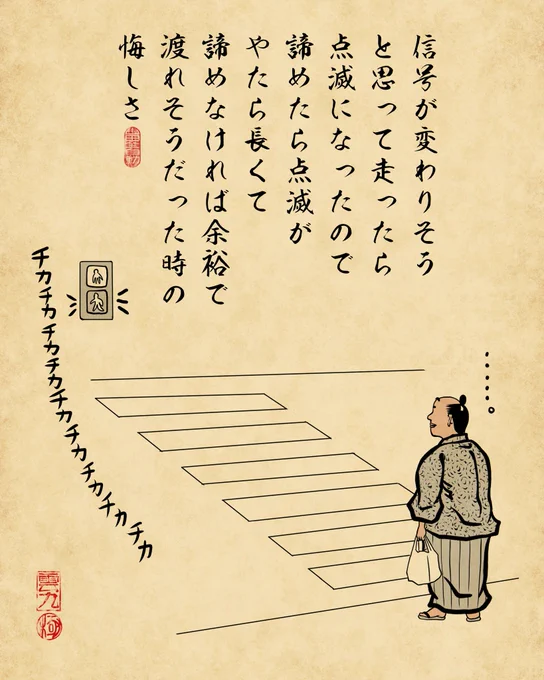 信号が変わりそう
と思って走ったら
点滅になったので
諦めたら点滅が
やたら長くて
諦めなければ余裕で
渡れそうだった時の
悔しさ
チカチカチカチカチカチカチカチカチカチカ